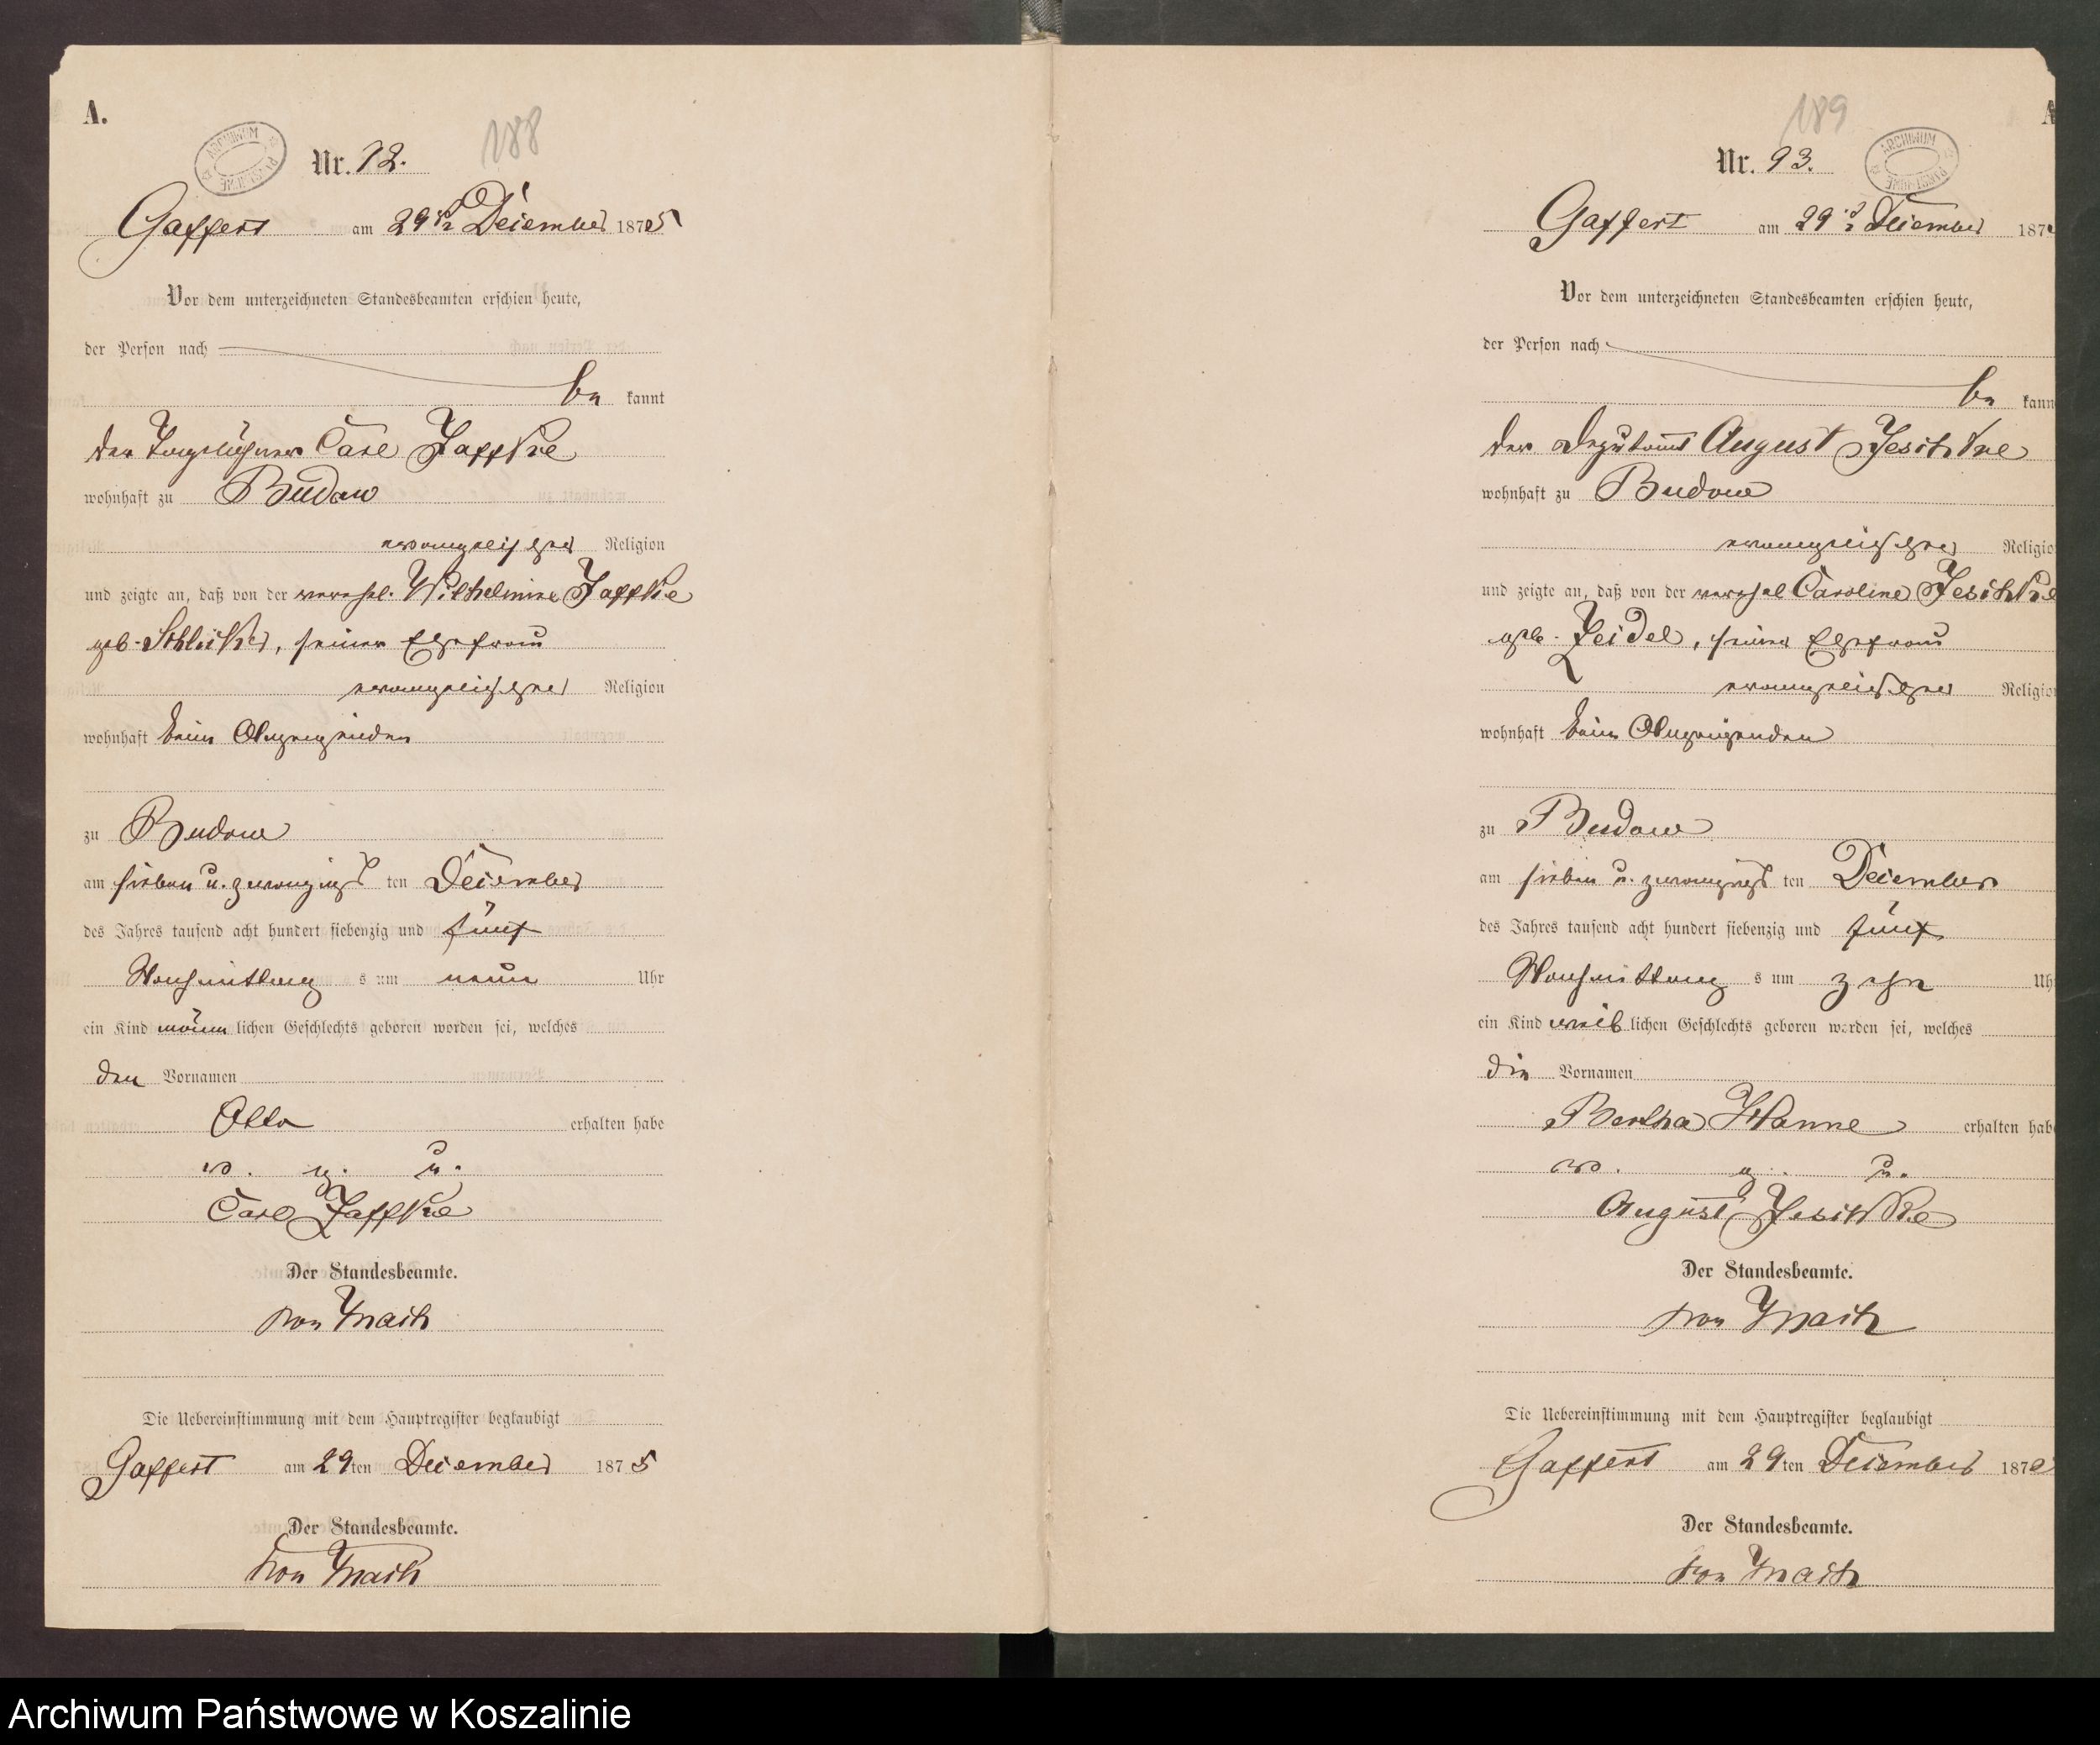 A.
188
ARCHIWUM PAŃSTWOWE
Nr. 92.
Gaffert am 29ten December 1875
Vor dem unterzeichneten Standesbeamten erschien heute,
der Person nach
be kannt
der Tagelöhner Carl Jaffke
wohnhaft zu Budow
evangelischer Religion
und zeigte an, daß von der verehel. Wilhelmine Jaffke
geb. , seiner Ehefrau
evangelischer Religion
wohnhaft beim Anzeigenden
zu Budow
am sieben u. zwanzigs ten December
des Jahres tausend acht hundert siebenzig und fünf
Nachmittag s um neun Uhr
ein Kind männ lichen Geschlechts geboren worden sei, welches
den Vornamen
Otto erhalten habe
v. g. u.
Carl Jaffke
Der Standesbeamte.
von Mach
Die Uebereinstimmung mit dem Hauptregister beglaubigt
Gaffert am 29ten December 1875
Der Standesbeamte.
von Mach
A
189
Nr. 93.
ARCHIWUM PAŃSTWOWE
Gaffert am 29ten December 187
Vor dem unterzeichneten Standesbeamten erschien heute,
der Person nach
be kann
der Deputant August Jeschke
wohnhaft zu Budow
evangelischer Religio
und zeigte an, daß von der verehel Caroline Jeschke
geb. Zeidel, seiner Ehefrau
evangelischer Religio
wohnhaft beim Anzeigenden
zu Budow
am sieben u. zwanzigs ten December
des Jahres tausend acht hundert siebenzig und fünf
Nachmittag s um zehn Uh
ein Kind weib lichen Geschlechts geboren worden sei, welches
die Vornamen
Bertha Hanne erhalten hab
v. g. u.
August Jeschke
Der Standesbeamte.
von Mach
Die Uebereinstimmung mit dem Hauptregister beglaubigt
Gaffert am 29ten December 187
Der Standesbeamte.
von Mach
Archiwum Państwowe w Koszalinie